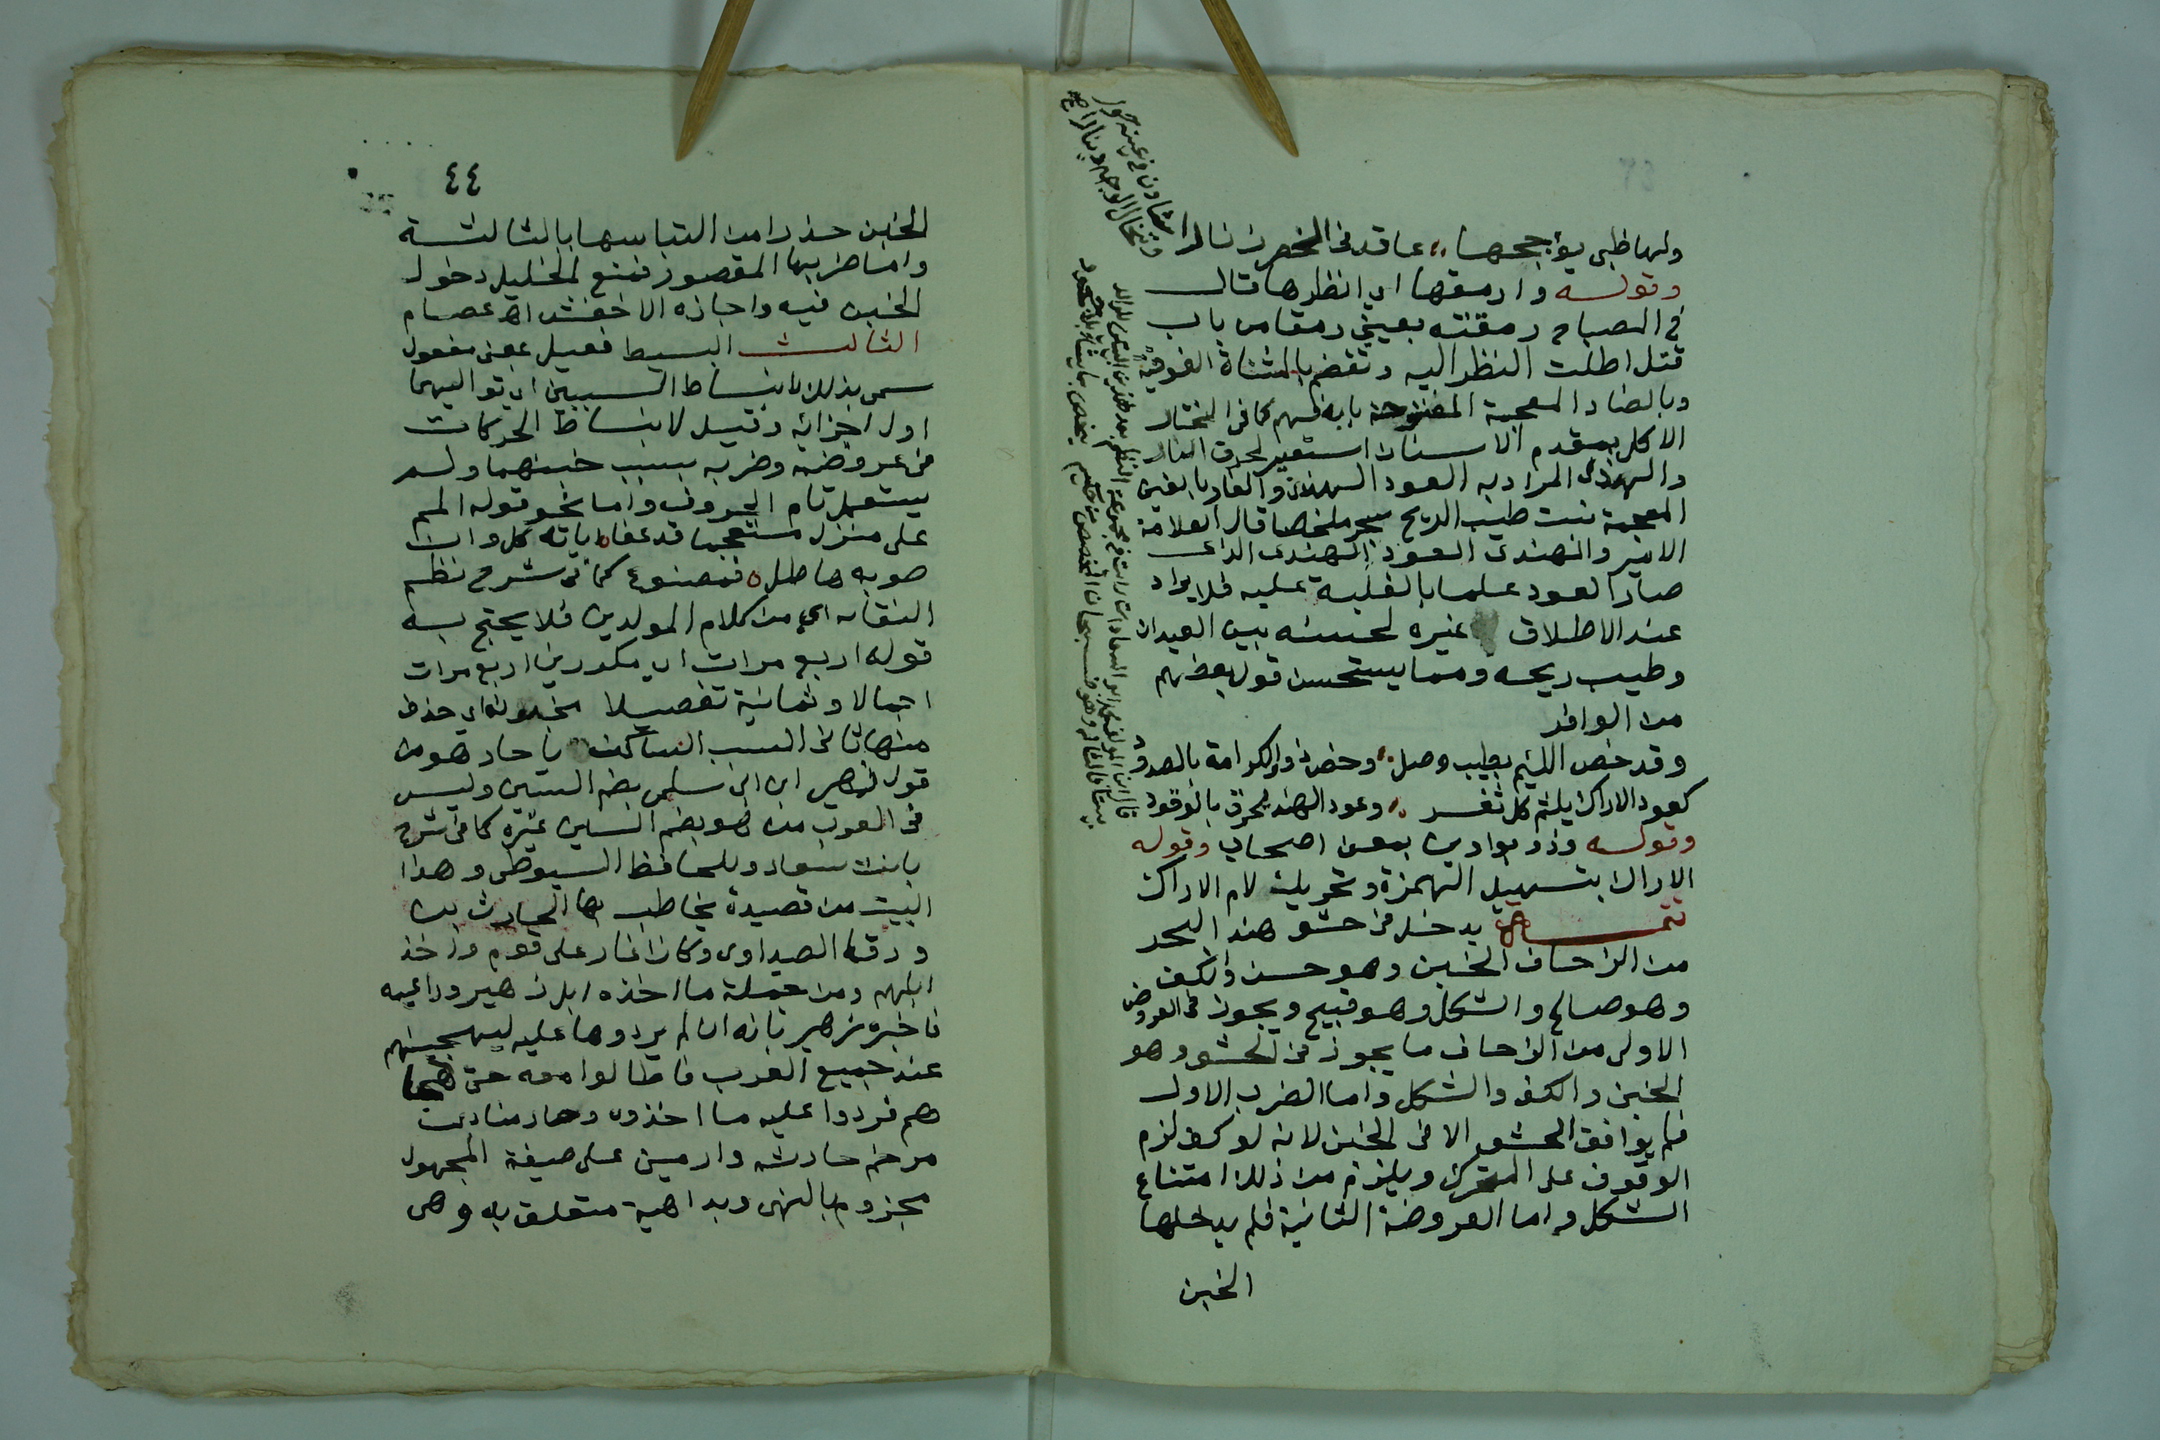 ولها ظبى يؤججها عاقد فى الخصر زنارا
شادن فى عينه حور
وتخال الوجه دينارا
وقوله وارمقها اى انظرها قال
فى المصباح رمقته بعينى رمقا من باب
قتل اطلت النظر اليه وتقضم بالمثناة الفوقية
وبالضاد المعجمة المفتوحة بابه فهم كما فى المختار
الاكل بمقدم الاسنان استعير لحرق النار
والهندى المراد به العود الهندى والغار بالغين
المعجمة نبت طيب الريح سحر ملخصا قال العلامة
الامير والهندى العود الهندى الذى
صار العود علما بالغلبة عليه فلا يراد
عند الاطلاق غيره لحسنه بين العيدان
وطيب ريحه ومما يستحسن قول بعضهم
من الوافر
وقد خص اللئيم بطيب وصل وخص ذوو الكرامة بالصدود
كعود الاراك يلثم كل ثغر وعود الهند يحرق بالوقود
وقوله وذو بوادين بمعنى اصحاب وقوله
الاراك بتسهيل الهمزة وتحريك لام الاراك
تتمة يدخل فى حشو هذا البحر
من الزحاف الخبن وهو حسن والكف
وهو صالح والشكل وهو قبيح ويجوز فى العروض
الاولى من الزحاف ما يجوز فى الحشو وهو
الخبن والكف والشكل واما الضرب الاول
فلم يوافق الحشو الا فى الخبن لانه لو كف لزم
الوقوف على المتحرك ويلزم من ذلك امتناع
الشكل واما العروضة الثانية فلم يدخلها
الخبن
٤٤
الخبن حذرا من التباسها بالثالثة
واما ضربها المقصور فمنع الخليل دخول
الخبن فيه واجازه الاخفش اه عصام
الثالث البسيط فعيل بمعنى مفعول
سمى بذلك لانبساط السببين اى تواليهما
اول اجزائه وقيل لانبساط الحركات
فى عروضه وضربه بسبب خبنهما ولم
يستعمل تام الحروف واما نحو قوله الم
على منزل مستعجما قد عفا اياته كل وان
صوبه هاطل فمصنوع كما فى شرح نظم
النقاية اى من كلام المولدين فلا يحتج به
قوله اربع مرات اى مكررين اربع مرات
اجمالا وثمانية تفصيلا مخبونة اى حذف
منها ثانى السبب الساكن يا حار هو من
قول زهير ابن ابى سلمى بضم السين وليس
فى العرب من هو بضم السين غيره كما فى شرح
بانت سعاد للحافظ السيوطى وهذا
البيت من قصيدة يخاطب بها الحارث بن
ورقا الصيداوى وكان اغار على قوم واخذ
ابلهم ومن جملة ما اخذه ابل زهير وراعيه
فاخبره زهير بانه ان لم يردوها عليه ليهجينهم
عند جميع العرب فاطالوا معه حتى هجا
هم فردوا عليه ما اخذوه وحار منادى
مرخم حارث وارمين على صيغة المجهول
مجزوم بالنهى وبداهية متعلق به وهى